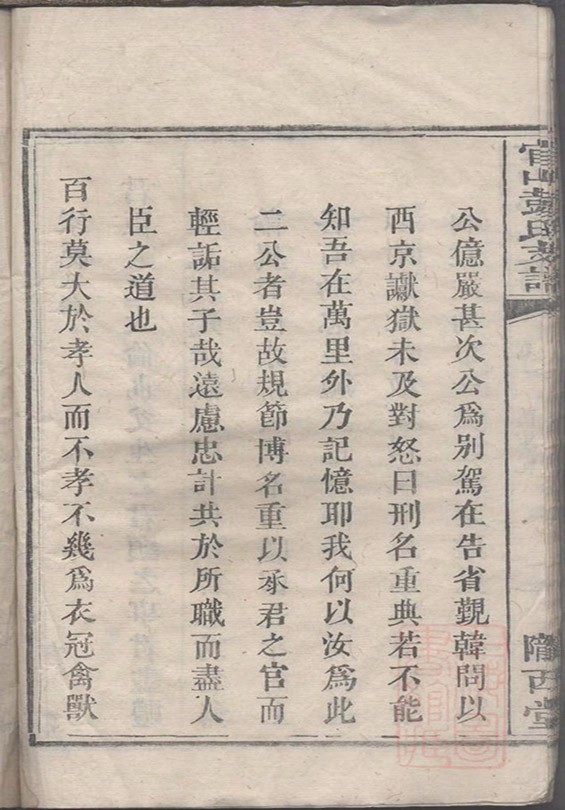 官山彭氏支譜
隴西堂
公億嚴甚次公為別駕在告省覲韓問以
西京讞獄未及對怒曰刑名重典若不能
知吾在萬里外乃記憶耶我何以汝為此
二公者豈故規節博名重以承君之官而
輕詬其子哉遠慮忠計共於所職而盡人
臣之道也
百行莫大於孝人而不孝不幾為衣冠禽獸